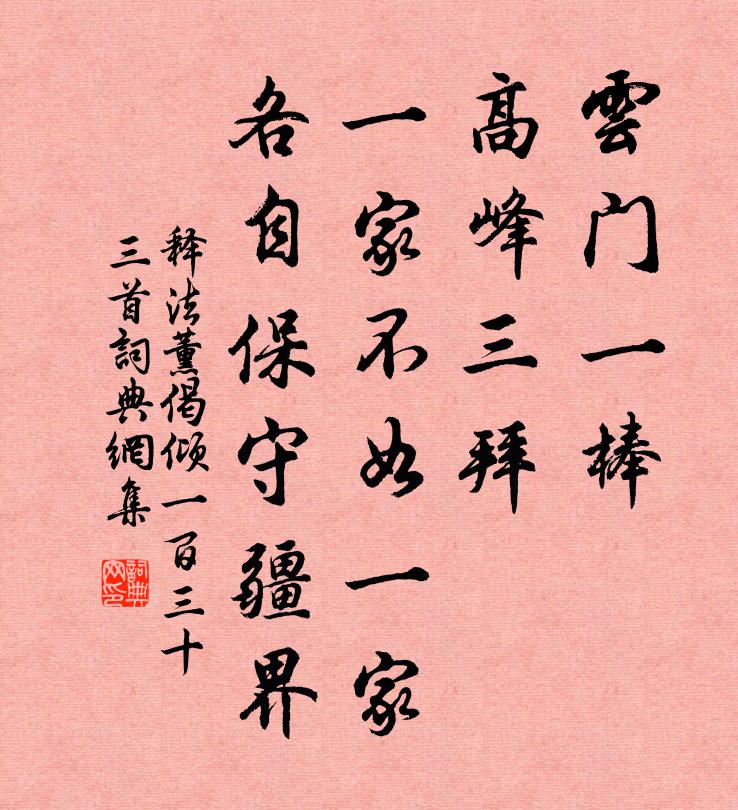 雲门一棒
高峰三拜
一家不如一家
各自保守疆界
释法薰偈倾一百三十
三首詞典網集
詞典网印